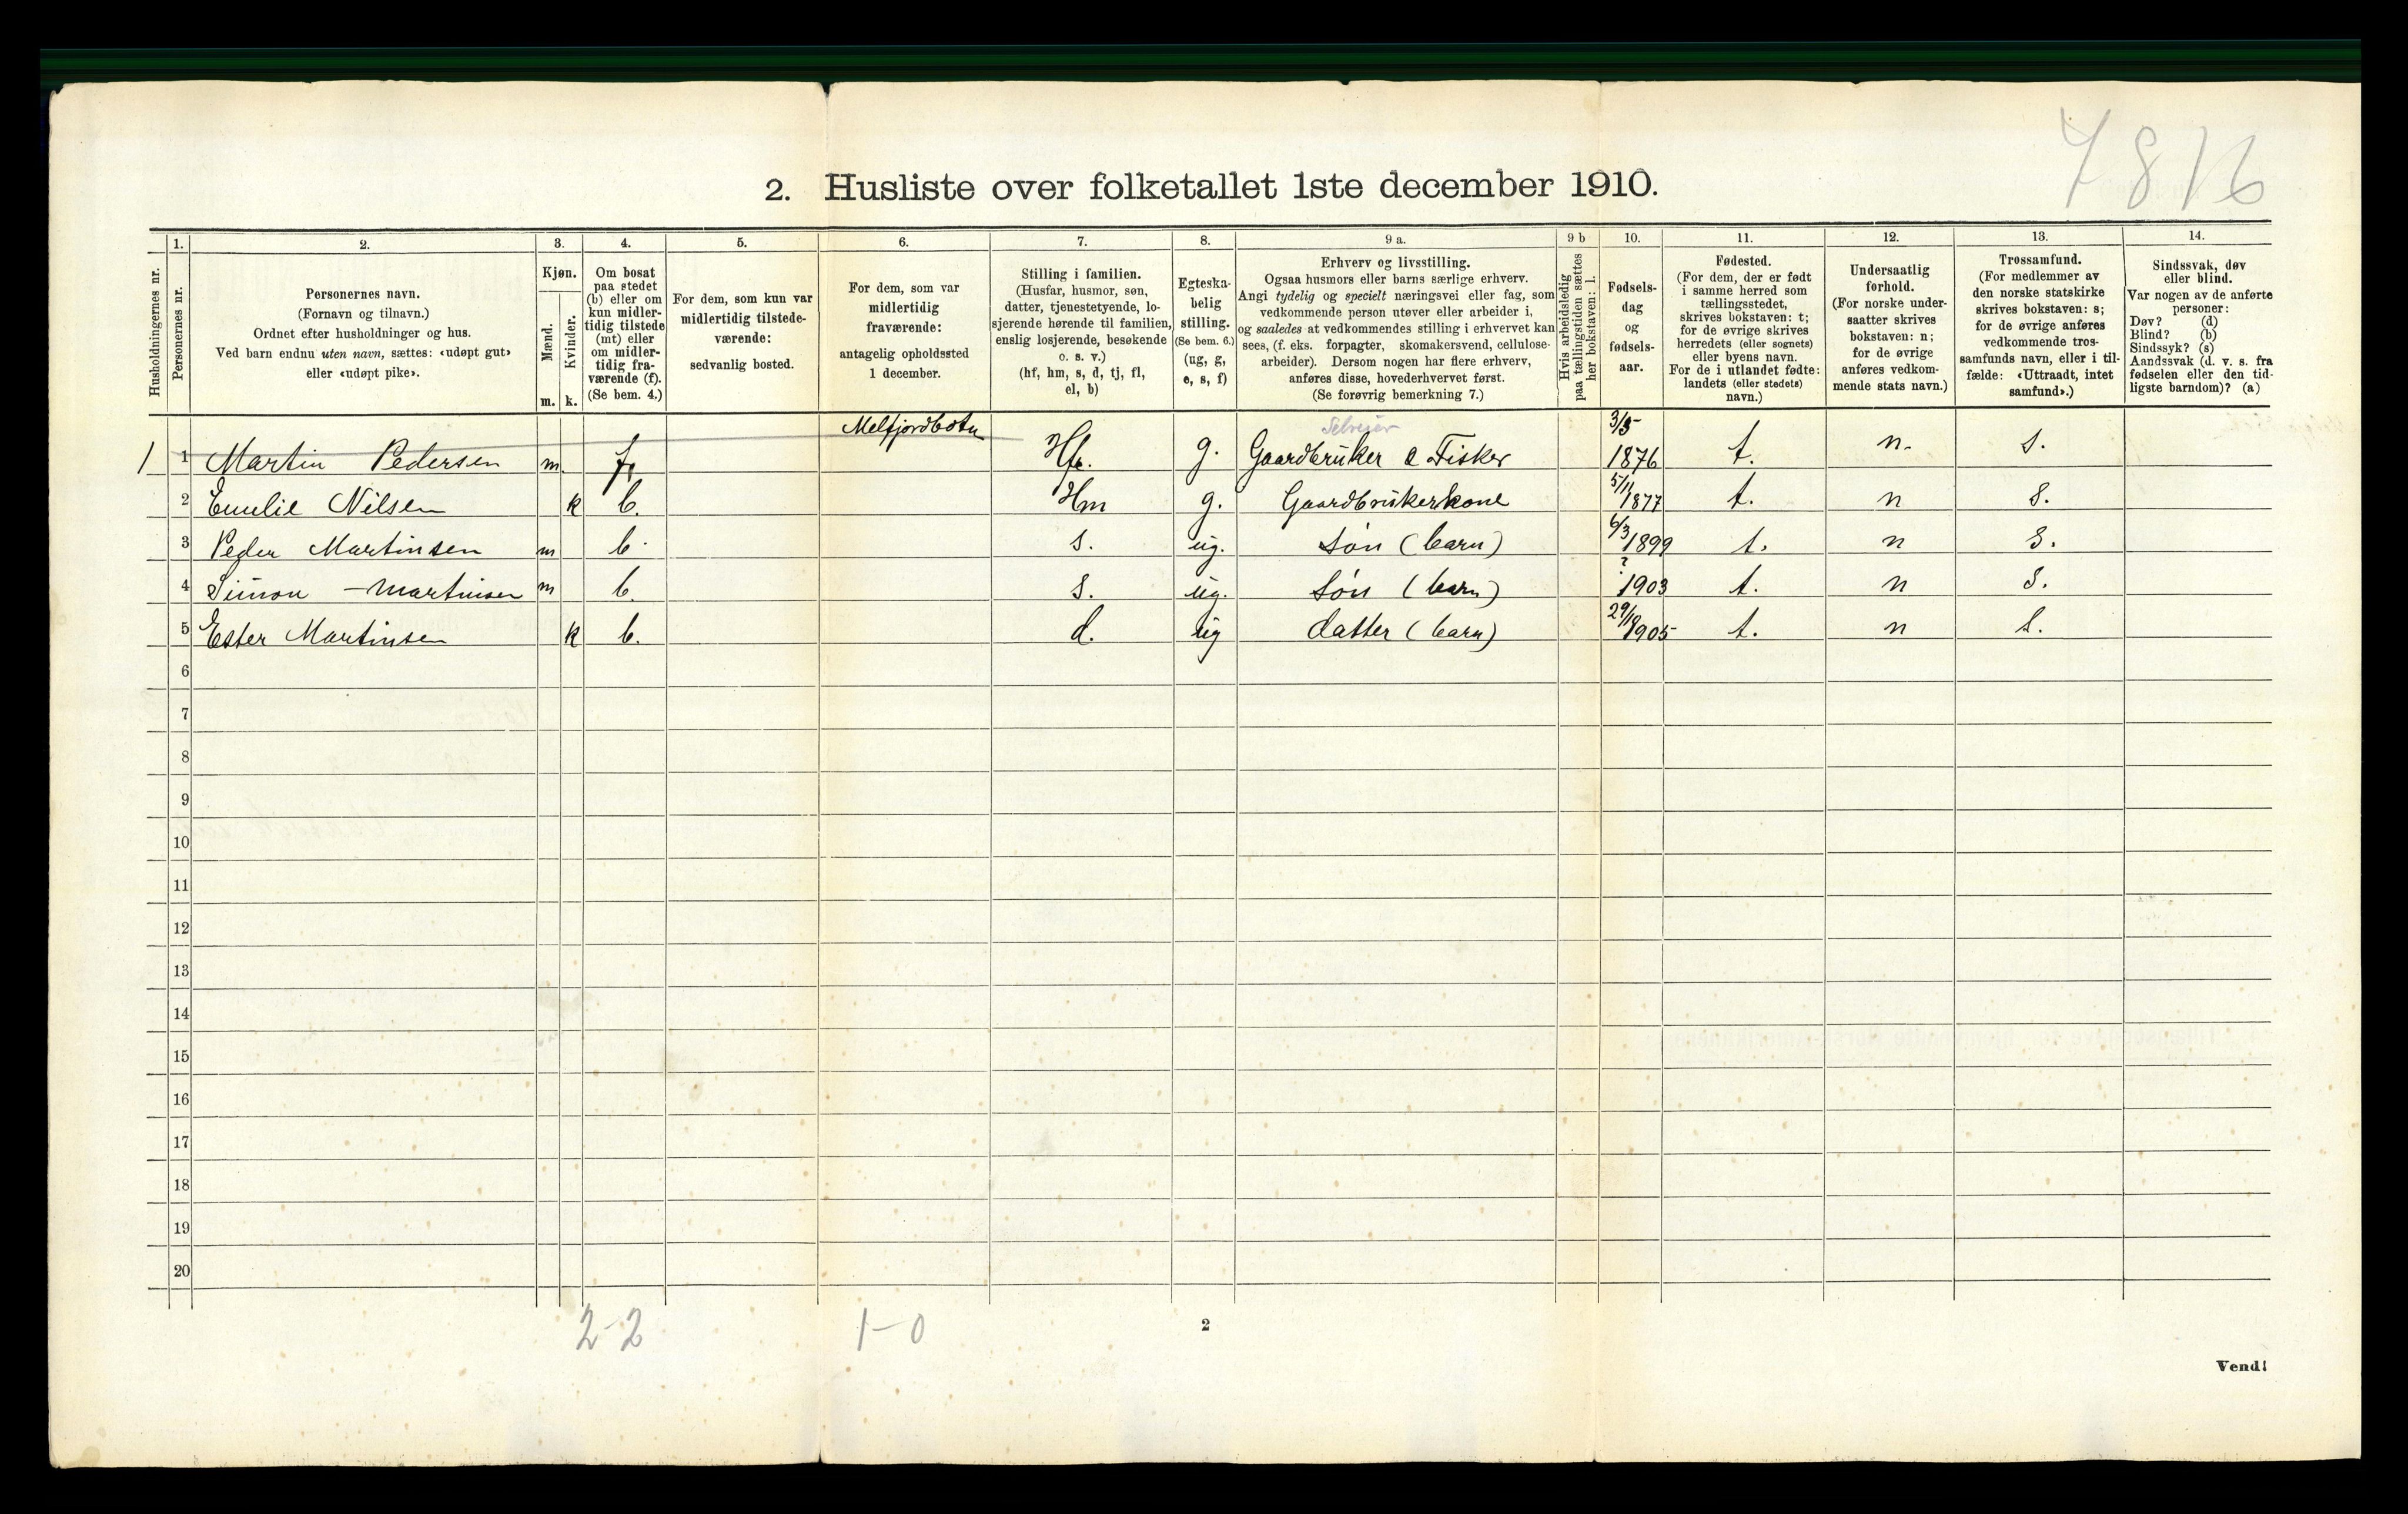 7816
2. Husliste over folketallet 1ste december 1910.
Husholdningernes nr.
1.
Personernes nr.
2.
Personernes navn.
(Fornavn og tilnavn.)
Ordnet efter husholdninger og hus.
Ved barn endnu uten navn, sættes: «udøpt gut»
eller «udøpt pike».
3.
Kjøn.
Mænd.
Kvinder.
m. k.
4.
Om bosat
paa stedet
(b) eller om
kun midler-
tidig tilstede
(mt) eller
om midler-
tidig fra-
værende (f).
(Se bem. 4.)
5.
For dem, som kun var
midlertidig tilstede-
værende:
sedvanlig bosted.
6.
For dem, som var
midlertidig
fraværende:
antagelig opholdssted
1 december.
7.
Stilling i familien.
(Husfar, husmor, søn,
datter, tjenestetyende, lo-
sjerende hørende til familien,
enslig losjerende, besøkende
o. s. v.)
(hf, hm, s, d, tj, fl,
el, b)
8.
Egteska-
belig
stilling.
(Se bem. 6.)
(ug, g,
e, s, f)
9 a.
Erhverv og livsstilling.
Ogsaa husmors eller barns særlige erhverv.
Angi tydelig og specielt næringsvei eller fag, som
vedkommende person utøver eller arbeider i,
og saaledes at vedkommendes stilling i erhvervet kan
sees, (f. eks. forpagter, skomakersvend, cellulose-
arbeider). Dersom nogen har flere erhverv,
anføres disse, hovederhvervet først.
(Se forøvrig bemerkning 7.)
9 b
Hvis arbeidsledig
paa tællingstiden sættes
her bokstaven: l.
10.
Fødsels-
dag
og
fødsels-
aar.
11.
Fødested.
(For dem, der er født
i samme herred som
tællingsstedet,
skrives bokstaven: t;
for de øvrige skrives
herredets (eller sognets)
eller byens navn.
For de i utlandet fødte:
landets (eller stedets)
navn.)
12.
Undersaatlig
forhold.
(For norske under-
saatter skrives
bokstaven: n;
for de øvrige
anføres vedkom-
mende stats navn.)
13.
Trossamfund.
(For medlemmer av
den norske statskirke
skrives bokstaven: s;
for de øvrige anføres
vedkommende tros-
samfunds navn, eller i til-
fælde: «Uttraadt, intet
samfund».)
14.
Sindssvak, døv
eller blind.
Var nogen av de anførte
personer:
Døv? (d)
Blind? (b)
Sindssyk? (s)
Aandssvak (d. v. s. fra
fødselen eller den tid-
ligste barndom)? (a)
Melfjordbotn Selveier 3/5-
1 1 Martin Pedersen m. f. Hf. g. Gaardbruker & Fisker 1876 t. n. s.
2 Emilie Nilsen k b. Hm g. Gaardbrukerkone 5/11 1877 t. n s.
3 Peder Martinsen m b. s. ug. søn (barn) 6/3 1899 t. n s.
4 Simon - Martinsen m b. s. ug. søn (barn) ? 1903 t. n s.
5 Ester Martinsen k b. d. ug datter (barn) 29/10 1905 t. n s.
6
7
8
9
10
11
12
13
14
15
16
17
18
19
20
2-2 1-0 2
Vend!